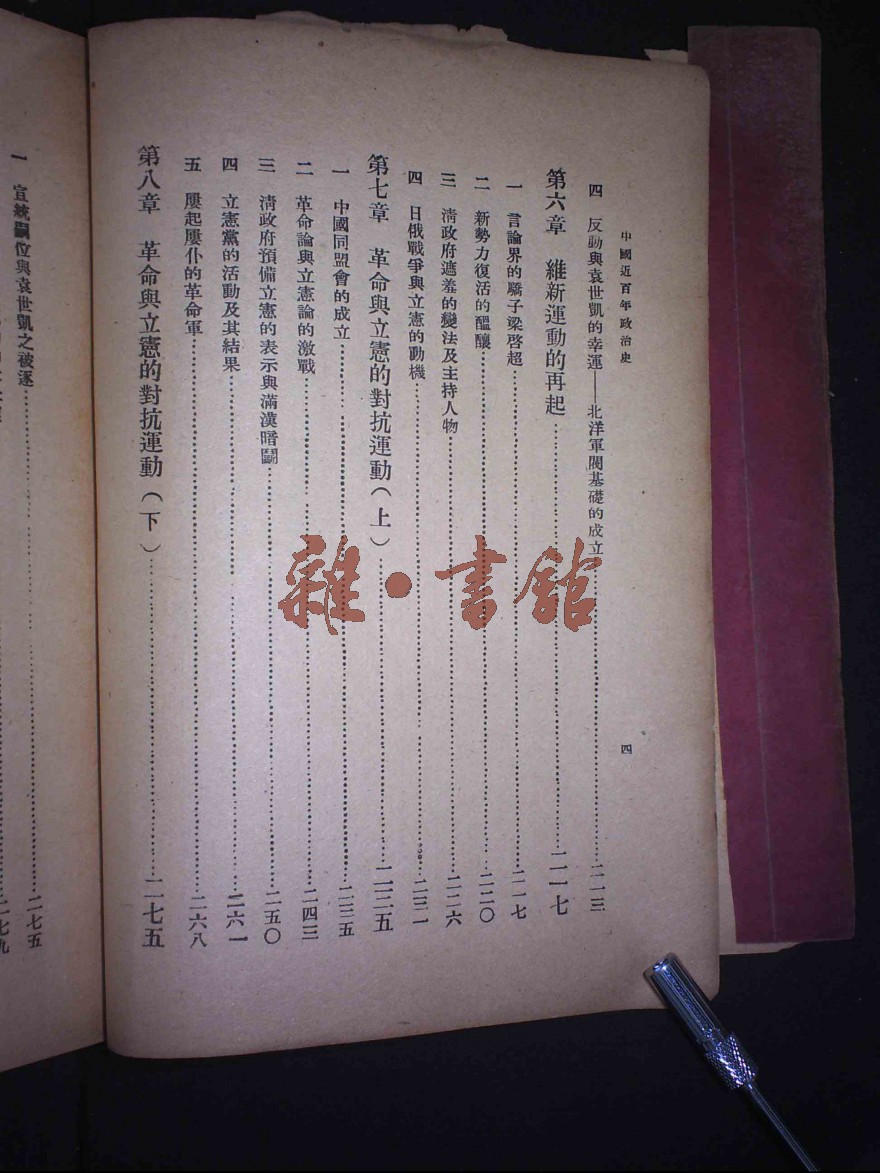 中國近百年政治史
四
四 反動與袁世凱的幸運——北洋軍閥基礎的成立……二一三
第六章 維新運動的再起……二一七
一 言論界的驕子梁啓超……二一七
二 新勢力復活的醞釀……二二〇
三 淸政府遮羞的變法及主持人物……二二六
四 日俄戰爭與立憲的動機……二三一
第七章 革命與立憲的對抗運動(上)……二三五
一 中國同盟會的成立……二三五
二 革命論與立憲論的激戰……二四三
三 淸政府預備立憲的表示與滿漢暗鬭……二五〇
四 立憲黨的活動及其結果……二六一
五 屢起屢仆的革命軍……二六八
第八章 革命與立憲的對抗運動(下)……二七五
一 宣統嗣位與袁世凱之被逐……二七五
二七九
雜·書館